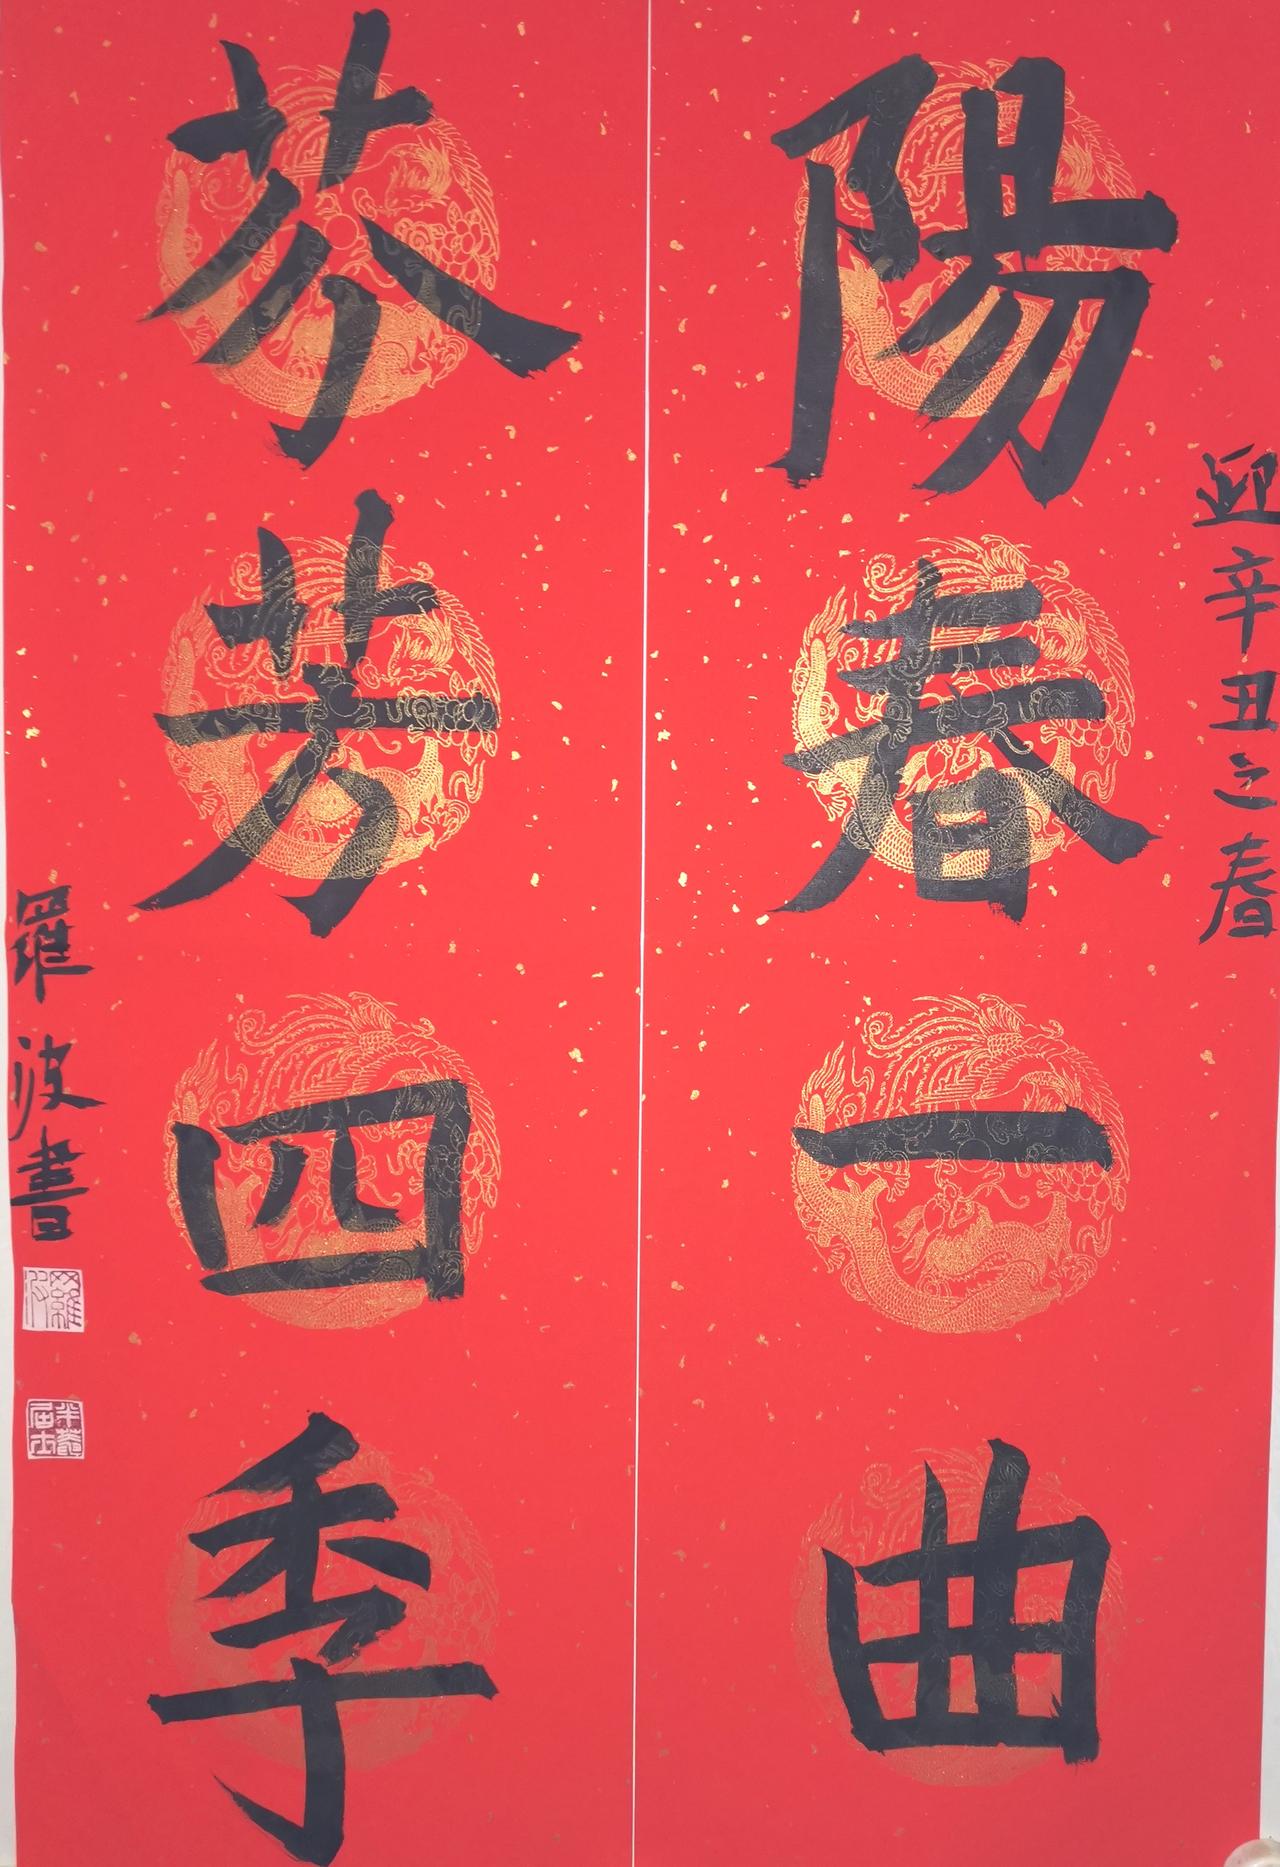 迎辛丑之春
陽春一曲
芬芳四季
羅波書
羅波